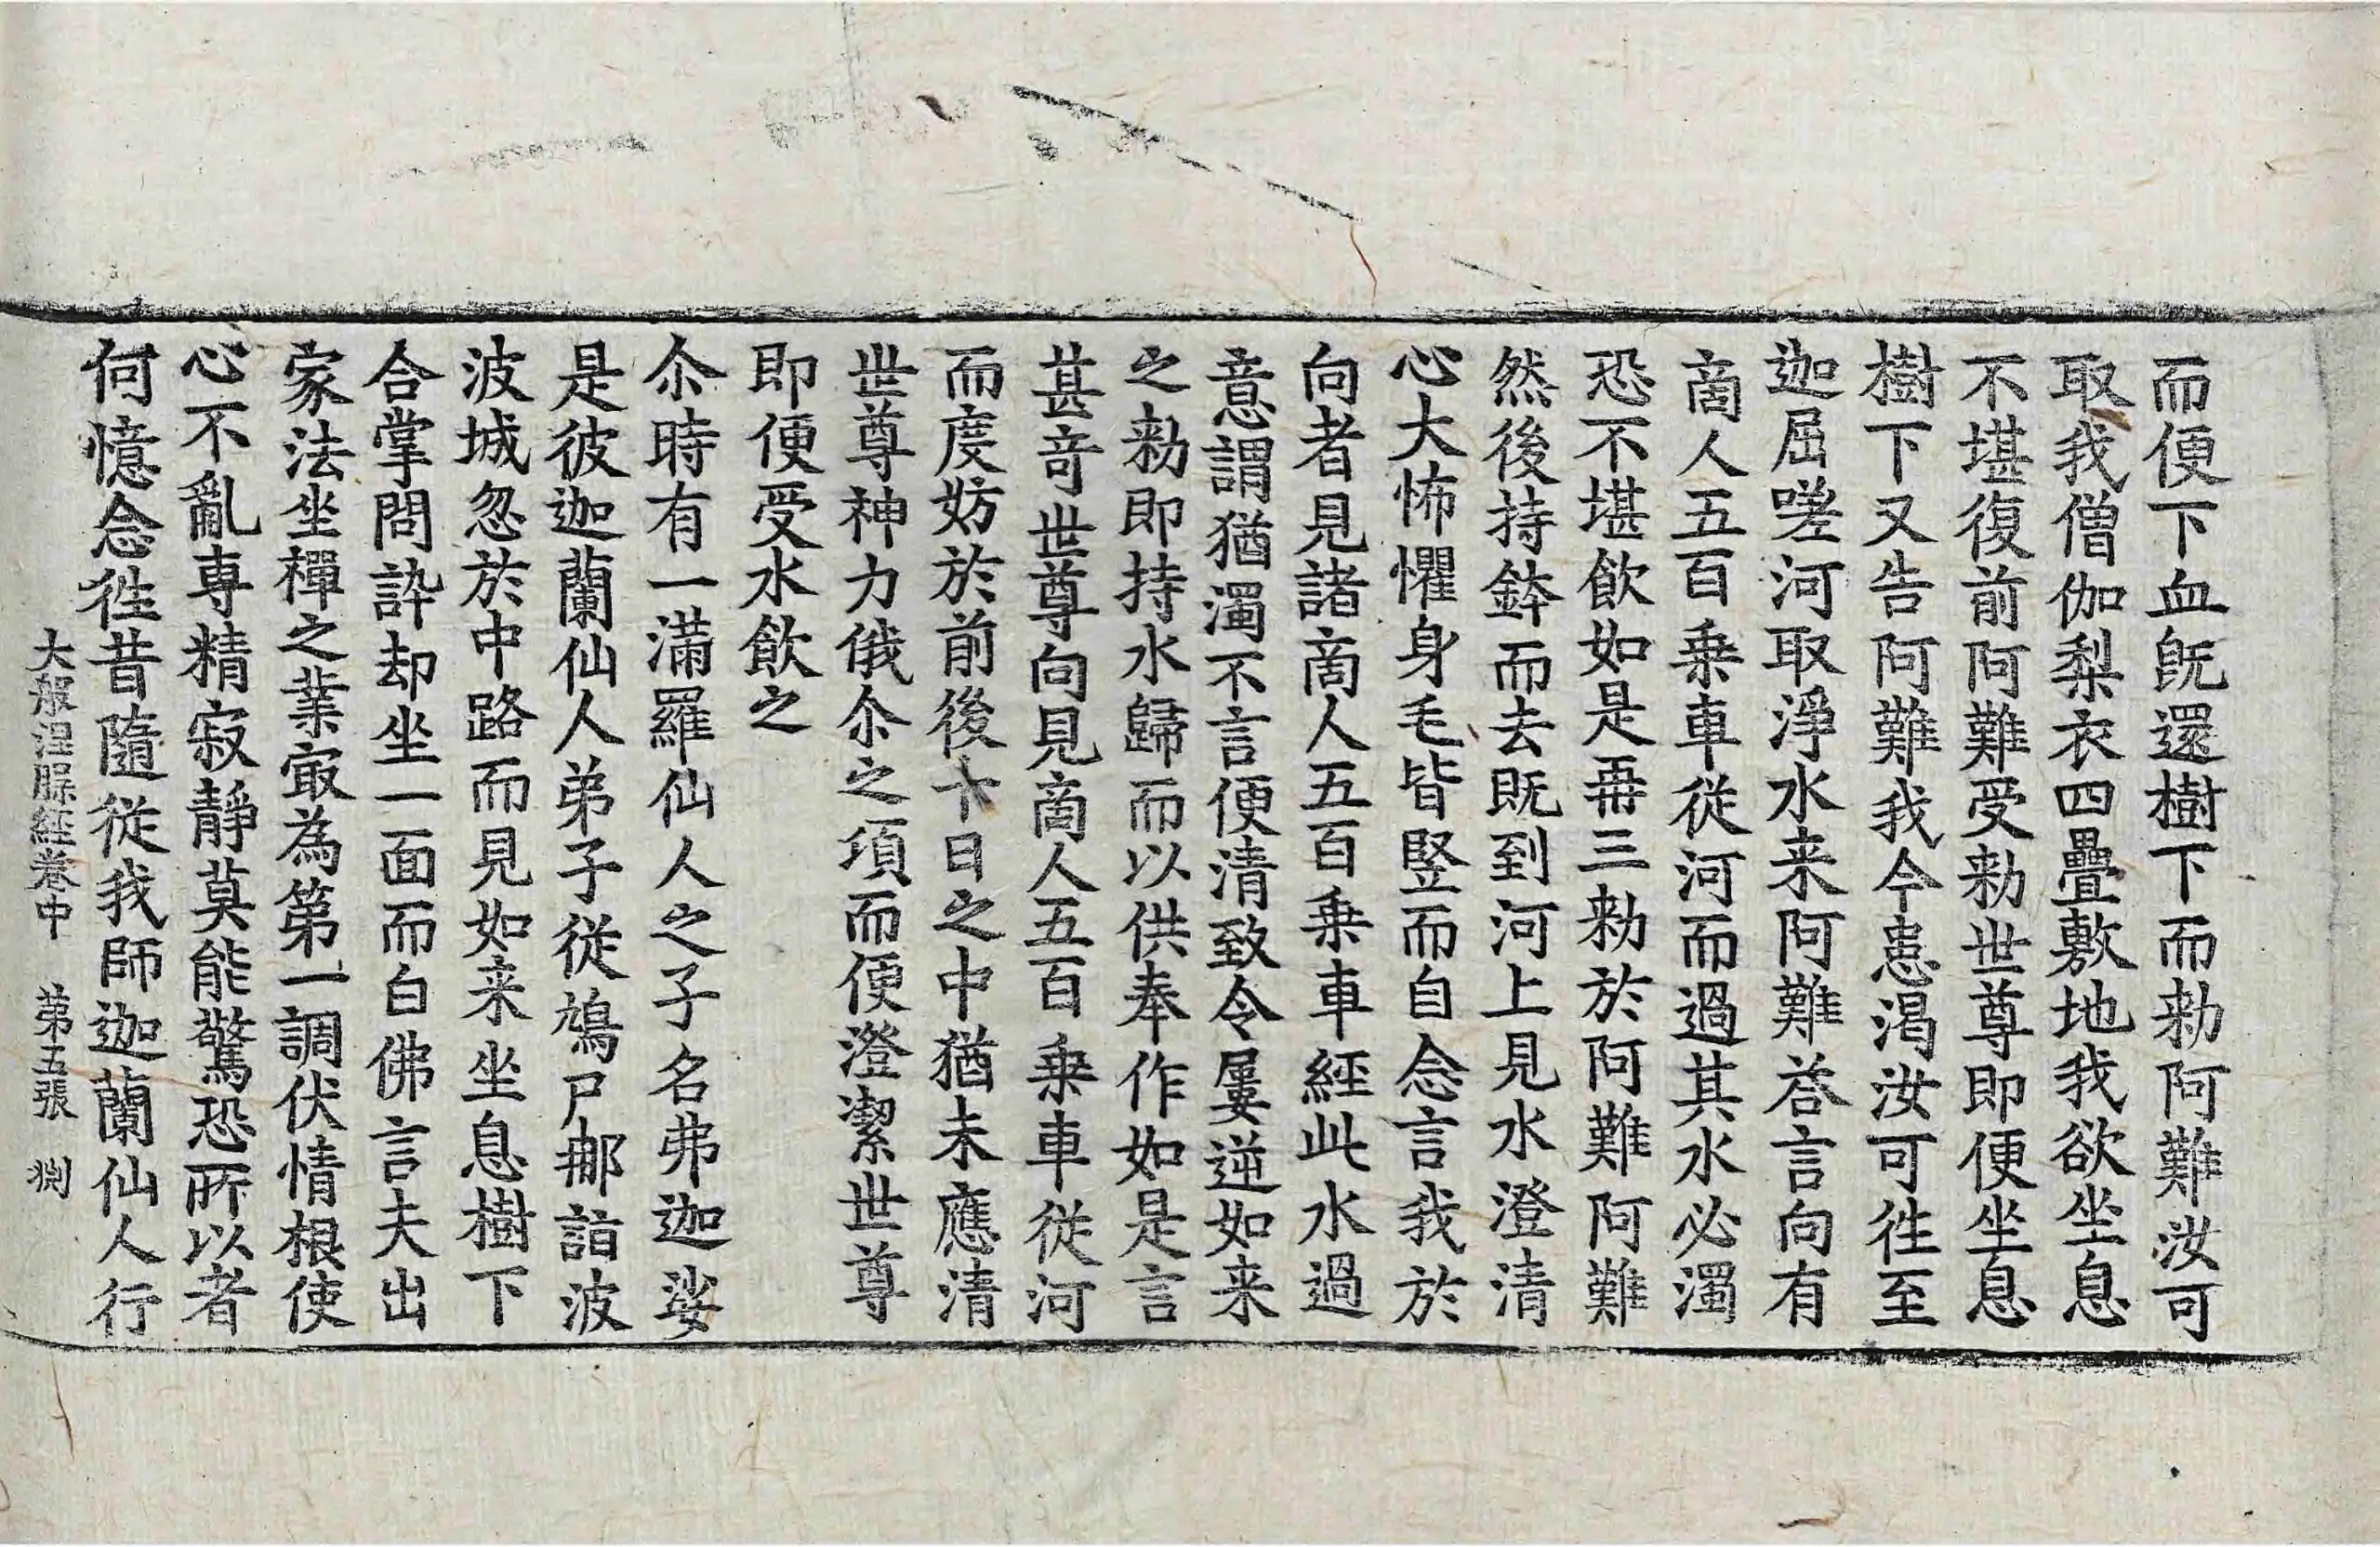 而便下血既還樹下而勑阿難汝可
取我僧伽梨衣四疊敷地我欲坐息
不堪復前阿難受勑世尊即便坐息
樹下又告阿難我今患渴汝可徃至
迦屈嗟河取淨水来阿難荅言向有
啇人五百乗車從河而過其水必濁
恐不堪飲如是再三勑於阿難阿難
然後持鉢而去既到河上見水澄清
心大怖懼身毛皆竪而自念言我於
向者見諸啇人五百乗車經此水過
意謂猶濁不言便清致令屢逆如来
之勑即持水歸而以供奉作如是言
甚奇世尊向見啇人五百乗車從河
而度妨於前後十日之中猶未應清
世尊神力俄尒之頃而便澄潔世尊
即便受水飲之
尒時有一滿羅仙人之子名弗迦娑
是彼迦蘭仙人弟子從鳩尸那詣波
波城忽於中路而見如来坐息樹下
合掌問訊却坐一面而白佛言夫出
家法坐禪之業㝡為第一調伏情根使
心不亂専精寂靜莫能驚恐所以者
何憶念徃昔隨從我師迦蘭仙人行
大般涅槃經卷中　第五張